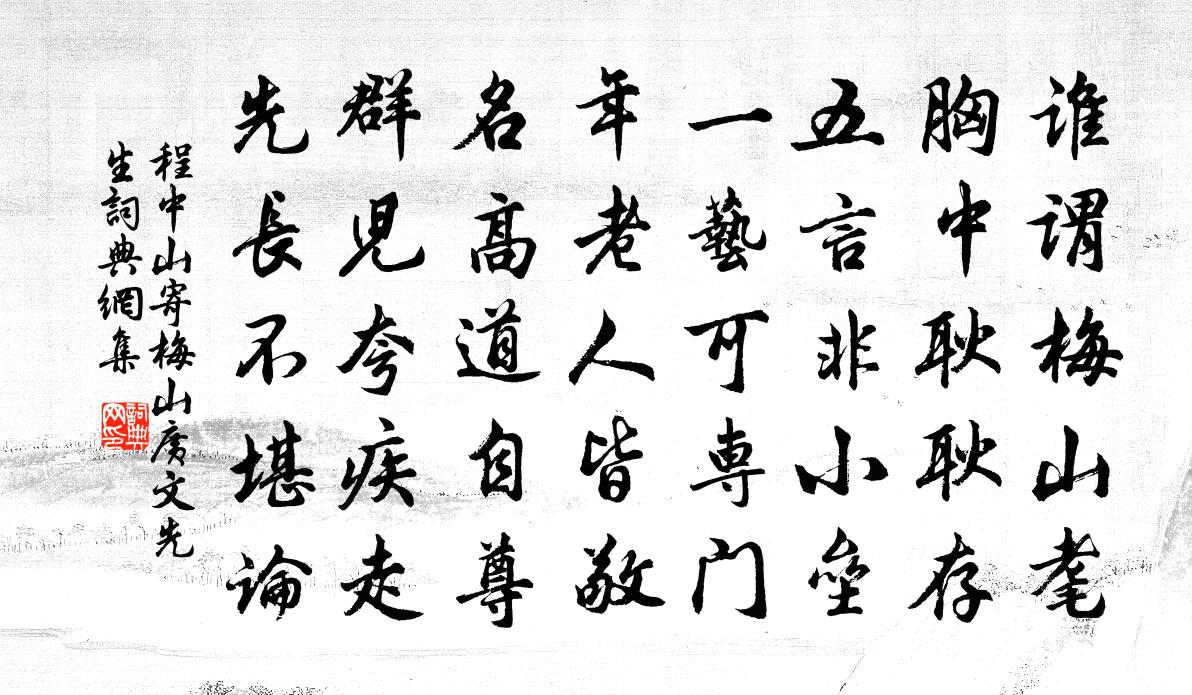 谁谓梅山耄
胸中耿耿存
五言非小垒
一藝可専门
年老人皆敬
名高道自尊
群児夸疾走
先長不堪論
程中山寄梅山広文先
生詞典網集
詞典
网印